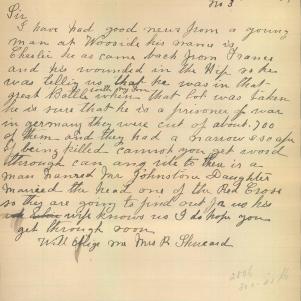 No 3
Sir
I have had good news from a young
man at Wooside his name is
Charlie he as came back from France
and his wounded in the Hip so he
was telling us that he was in that
great Battle with my son
when that Cot was taken
he is sure that he is a prisoner of war
in germany they were cut of about 700
of them and they had a narrow escape
of being killed cannot you get word
through can any rite to there is a
man named Mr Johnston Daughter
married the head one of the Red Cross
so they are going to find out for us his
wife knows us I do hope you
get through soon
Will oblige me Mrs R